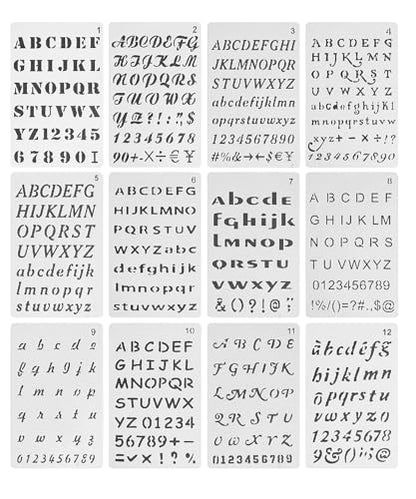 1
ABCDEF
GHIJKL
MNOPQR
STUVWX
YZ12345
67890I
2
ABCDEFG
HIJKLM
NOPQRS
TUVWX
YZ?!:"$
12345678
90+-×÷€¥
3
ABCDEFGHI
JKLMNOPQR
STUVWXYZ
abcdefijklm
opqrstuvwxyz
1234567890
#%&→←$€¥
4
ABCDEFG
HIJKLMN
OPQRST
UVWXYZ
abcdefghijkl
mnopqrstuvw
xyz+-×÷!?
1234567890
5
ABCDEFG
HIJKLMN
OPQRST
UVWXYZ
abcdefijk
lmnopqr
stuvwxyz
6
ABCDEFG
HIJKLMNO
PQRSTUV
WXYZabc
defghijk
lmnopqr
stuvwxyz
7
abcde
fghijkl
lmnop
qrstu
vwxyz
&()?!@;
8
ABCDEF
GHIJKLM
NOPQRS
TUVWXYZ
0123456789
!%/()=?#..$@
9
a b c d e
f g h i j k
l m n o p
q r s t u
v w x y z
0123456789
10
ABCDEF
GHIJKL
MNOPQR
STUVWX
YZ01234
56789+-
=✓×!?%
11
ABCDE
FGHIJK
LMNOP
QRSTU
VWXYZ
0123456789
12
abcdefg
hijklmn
opqrstu
vwxyzo
12345678
9&@